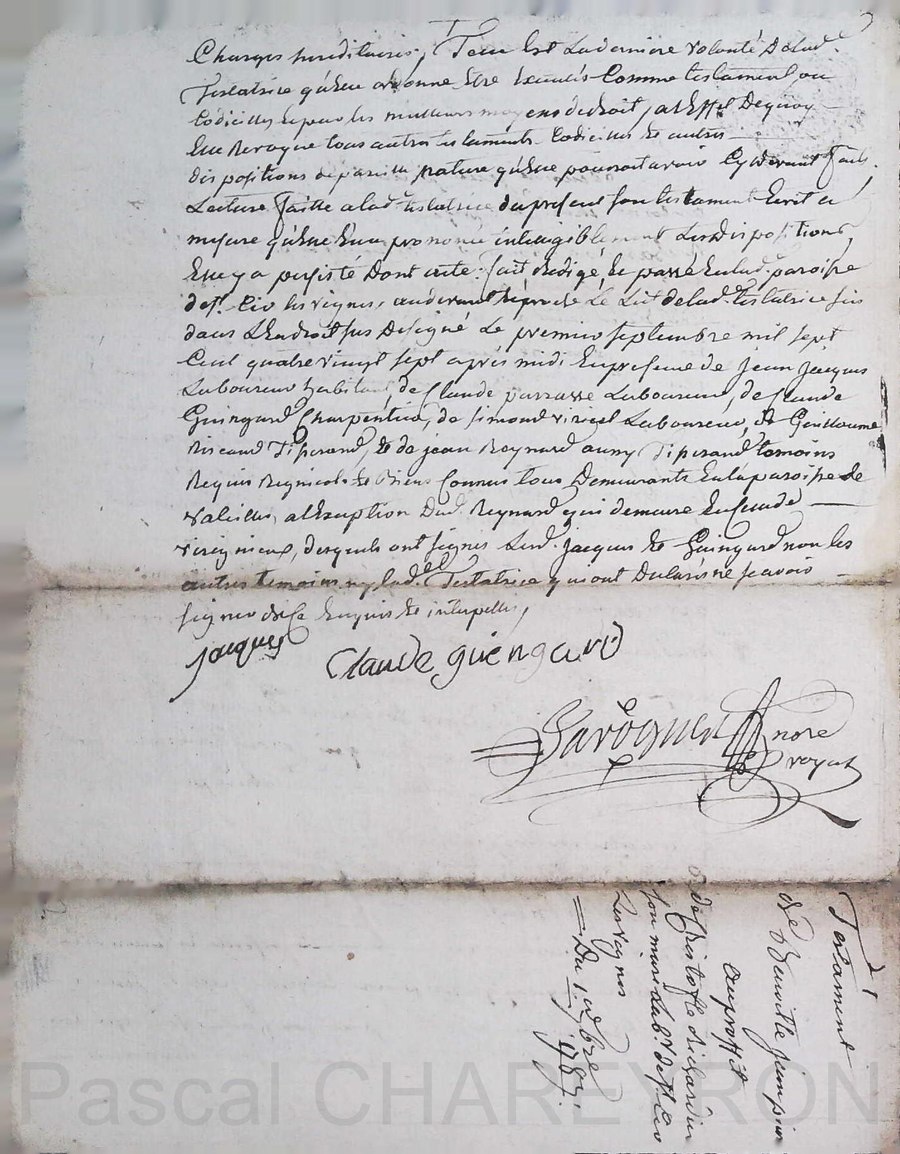 Charges hereditaires, Telle Est La derniere volonté De Lad.e
Testatrice qu'elle ordonne Etre Executés Comme testament, ou
Codicilles, Et par les meilleurs moyens de droit, a L'Effet Dequoy
Elle Revoque tous autres testaments Codicilles Et autres
dispositions de pareille Nature qu'elle pourroit avoir Cy devant Faits,
Lecture Faitte a lad. testatrice du present son testament Ecrit a
mesure qu'elle L'en a prononcé intelligiblement Les Dispositions,
Elle y a persisté Dont acte: fait Redigé Et passé En lad.e paroisse
de St. Cir les vignes, au devant Et proche Le Lit de lad. testatrice
dans L'Endroit sus Designé Le premier septembre mil sept
Cent quatre vingt sept après midi En presence de jean jacques
Laboureur habitant, de Claude Laboureur, de Claude
Guingard Charpentier, de simond Laboureur, Et Guilloume
Tisserand, Et de jean Reynard aussy Tisserand temoins
Requis Regnicoles Et Biens Connus tous Demeurants En la paroisse de
Valeille, a L'Exception Dud. Reynard qui demeure En Celle de
virignieux, desquels ont signés Lesd. jacques Et Guingard non les
autres temoins ny lad.e Testatrice qui ont Declarés ne sçavoir
signer de Ce Enquis Et interpellés,
jacques
Claude guengard
nore
Royal
Testament
de jeampier
au proffit
de Cristofle
son mari Lab.r de St Cir
Les vignes
Du 1.er 7bre 1787.
Pascal CHAREYRON